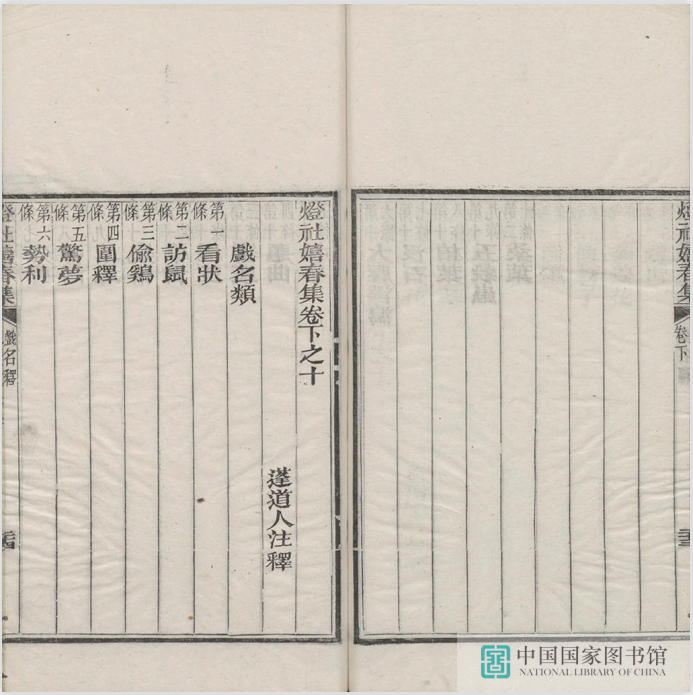 燈社嬉春集
卷下
燈社嬉春集卷下之十
蓬道人注釋
戲名類
第一條看狀
第二條訪鼠
第三條偷鷄
第四條圓釋
第五條驚夢
第六條勢利
燈社嬉春集
戲名釋
中国国家图书馆
NATIONAL LIBRARY OF CHINA